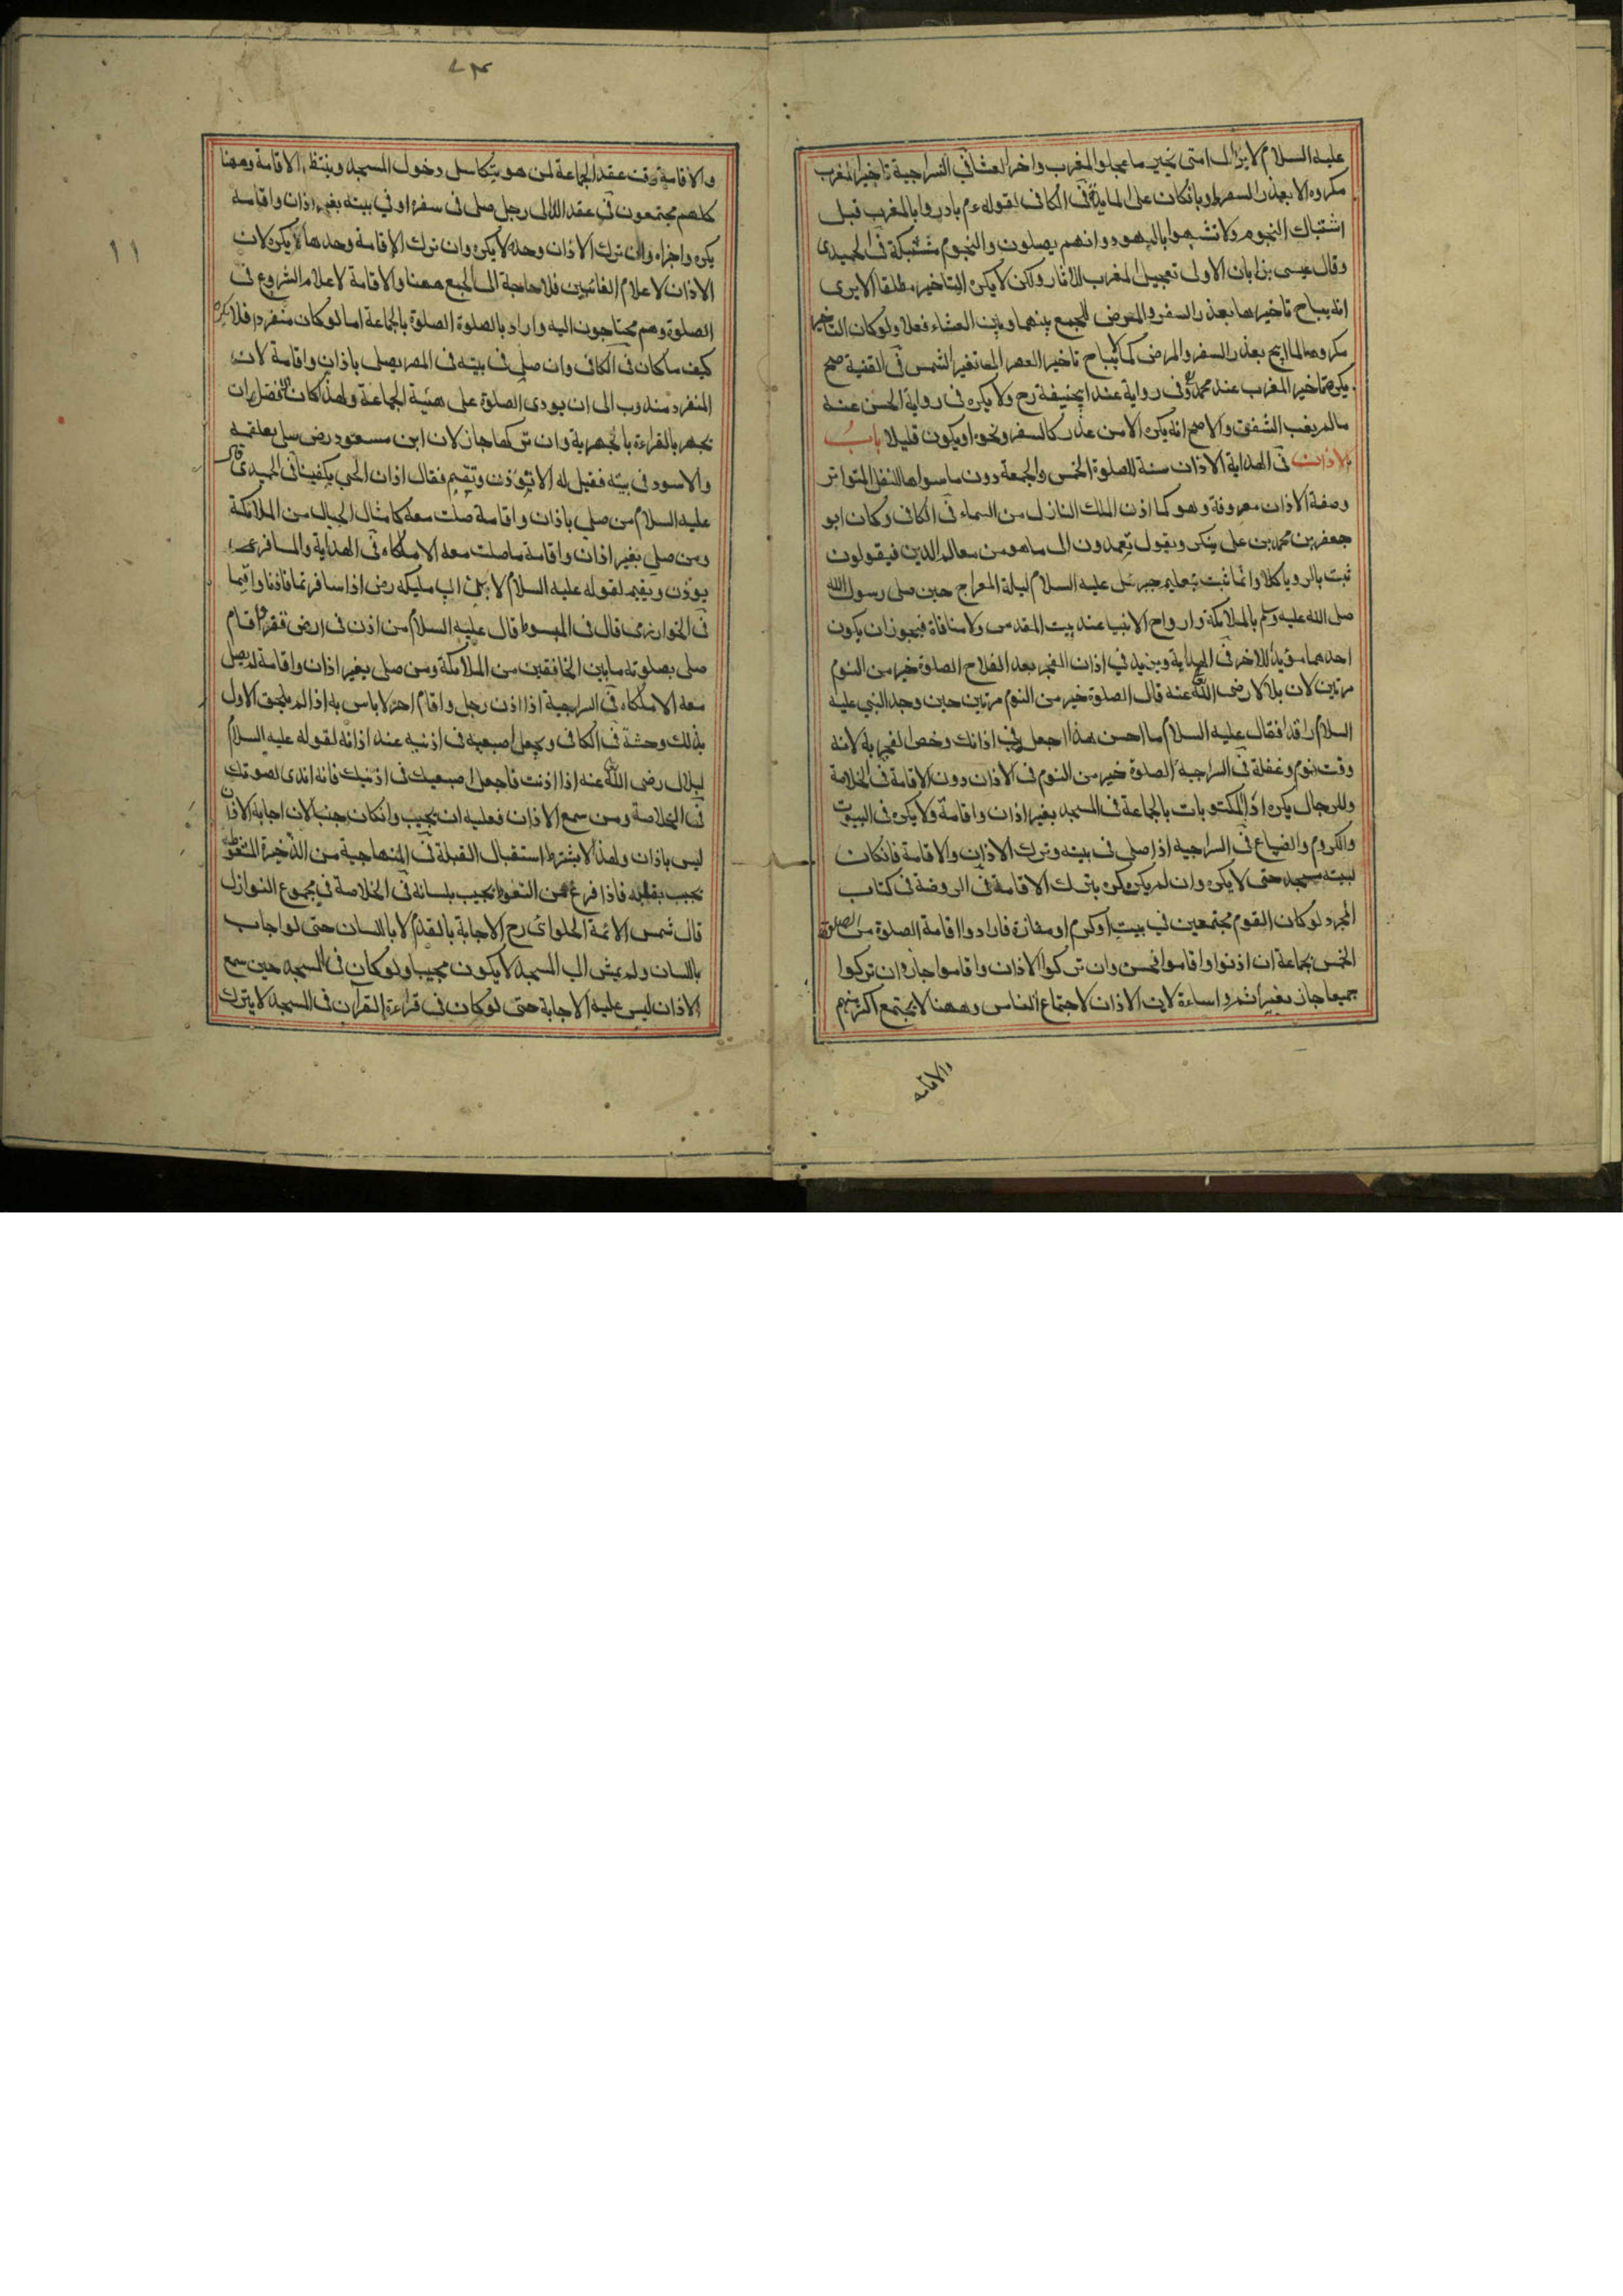 عليه السلام لا يزال امتى بخير ما عجلوا المغرب واخروا العشا فى السراجية تاخير المغرب
مكروه الا بعذر السفر او بان كان على المايدة فى الكافى لقوله عم بادروا بالمغرب قبل
اشتباك النجوم ولا تشبهوا باليهود وانهم يصلون والنجوم مشتبكة فى الحميدى
وقال عيسى بن ابان الاولى تعجيل المغرب للاثار ولكن لا يكره التاخير مطلقا الا يرى
انه يباح تاخيرها بعذر السفر والمرض للجمع بينهما وبين العشاء فعلا ولو كان التاخير
مكروها لما ابيح بعذر السفر والمرض كما لا يباح تاخير العصر الى تغير الشمس فى القنية صح
يكره تاخير المغرب عند محمد وفى رواية عند ابيحنيفة رح ولا يكره فى رواية الحسن عنه
ما لم يغب الشفق والاصح انه يكره الا من عذر كالسفر ونحوه او يكون قليلا باب
الاذان فى الهداية الاذان سنة للصلوة الخمس والجمعة دون ما سواها للنقل المتواتر
وصفة الاذان معروفة وهو كما اذن الملك النازل من السماء فى الكافى وكان ابو
جعفر بن محمد بن على ينكر ويقول تعمدون الى ما هو من معالم الدين فيقولون
ثبت بالرويا كلا وانما ثبت بتعليم جبرئيل عليه السلام ليلة المعراج حين صلى رسول الله
صلى الله عليه وسلم بالملائكة وارواح الانبيا عند بيت المقدس ولا منافاة فيجوز ان يكون
احدهما مؤيد للاخر فى الهداية ويزيد فى اذان الفجر بعد الفلاح الصلوة خير من النوم
مرتين لان بلالا رضى الله عنه قال الصلوة خير من النوم مرتين حين وجد النبي عليه
السلام راقدا فقال عليه السلام ما احسن هذا اجعل فى اذانك وخص الفجر به لانه
وقت نوم وغفلة فى السراجية الصلوة خير من النوم فى الاذان دون الاقامة فى الخلاصة
وللرجال يكره اذا المكتوبات بالجماعة فى المسجد بغير اذان واقامة ولا يكره فى البيوت
والكروم والضياع فى السراجيه اذا صلى فى بيته وترك الاذان والاقامة فانكان
لبيته مسجد حتى لا يكره وان لم يكن يكره بترك الاقامة فى الروضة فى كتاب
المجرد لو كان القوم مجتمعين فى بيت او كرم او مفازة فارادوا اقامة الصلوة من الصلوة
الخمس بجماعة ان اذنوا واقاموا فحسن وان تركوا الاذان واقاموا جاز وان تركوا
جميعا جاز بغير اثم واساءة لان الاذان لاجتماع الناس وههنا لا يجتمع اكثر منهم
والاقامه
٧٣
والاقامة وقت عقد الجماعة لمن هو يتكاسل دخول المسجد وينتظر الاقامة وههنا
كلهم مجتمعون فى عقد اللالى رجل صلى فى سفر او فى بيته بغير اذان واقامة
يكره واجزاه وان ترك الاذان وحده لا يكره وان ترك الاقامة وحدها يكره لان
الاذان لاعلام الغائبين فلا حاجة الى الجمع ههنا والاقامة لاعلام الشروع فى
الصلوة وهم محتاجون اليه واراد بالصلوة الصلوة بالجماعة اما لو كان منفردا فلا يكره
كيف ما كان فى الكافى وان صلى فى بيته فى المصر يصلى باذان واقامة لان
المنفرد مندوب الى ان يودى الصلوة على هئية الجماعة ولهذا كان الافضل ان
يجهر بالقراءة بالجهرية وان تركها جاز لان ابن مسعود رض صلى بعلقمه
والاسود فى بيته فقيل له الا تؤذن وتقيم فقال اذان الحي يكفينا فى الحميدى قال
عليه السلام من صلى باذان واقامة صلت معه كامثال الجبال من الملائكة
ومن صلى بغير اذان واقامة ما صلت معه الا ملكاه فى الهداية والمسافر
يوذن ويقيم لقوله عليه السلام لابنى ابى مليكه رض اذا سافرتما فاذنا واقيما
فى الخوارزمى قال فى المبسوط قال عليه السلام من اذن فى ارض قفر واقام
صلى بصلوته ما بين الخافقين من الملائكة ومن صلى بغير اذان واقامة لم يصل
معه الا ملكاه فى السراجية اذا اذن رجل واقام اخر لا باس به اذا لم يلحق الاول
بذلك وحشة فى الكافى ويجعل اصبعيه فى اذنيه عند اذانه لقوله عليه السلام
لبلال رضى الله عنه اذا اذنت فاجعل اصبعيك فى اذنيك فانه اندى لصوتك
فى الخلاصة ومن سمع الاذان فعليه ان يجيب وانكان جنبا لان اجابة الاذان
ليس باذان ولهذا لا يشترط استقبال القبلة فى المنهاجية من الذخيرة المتغوط
يجيب بقلبه فاذا فرغ من التغوط يجيب بلسانه فى الخلاصة فى مجموع النوازل
قال شمس الائمة الحلوائى رح الاجابة بالقدم لا باللسان حتى لو اجاب
باللسان ولم يمش الى المسجد لا يكون مجيبا ولو كان فى المسجد حين سمع
الاذان ليس عليه الاجابة حتى لو كان فى قراءة القرآن فى المسجد لا يترك
١١